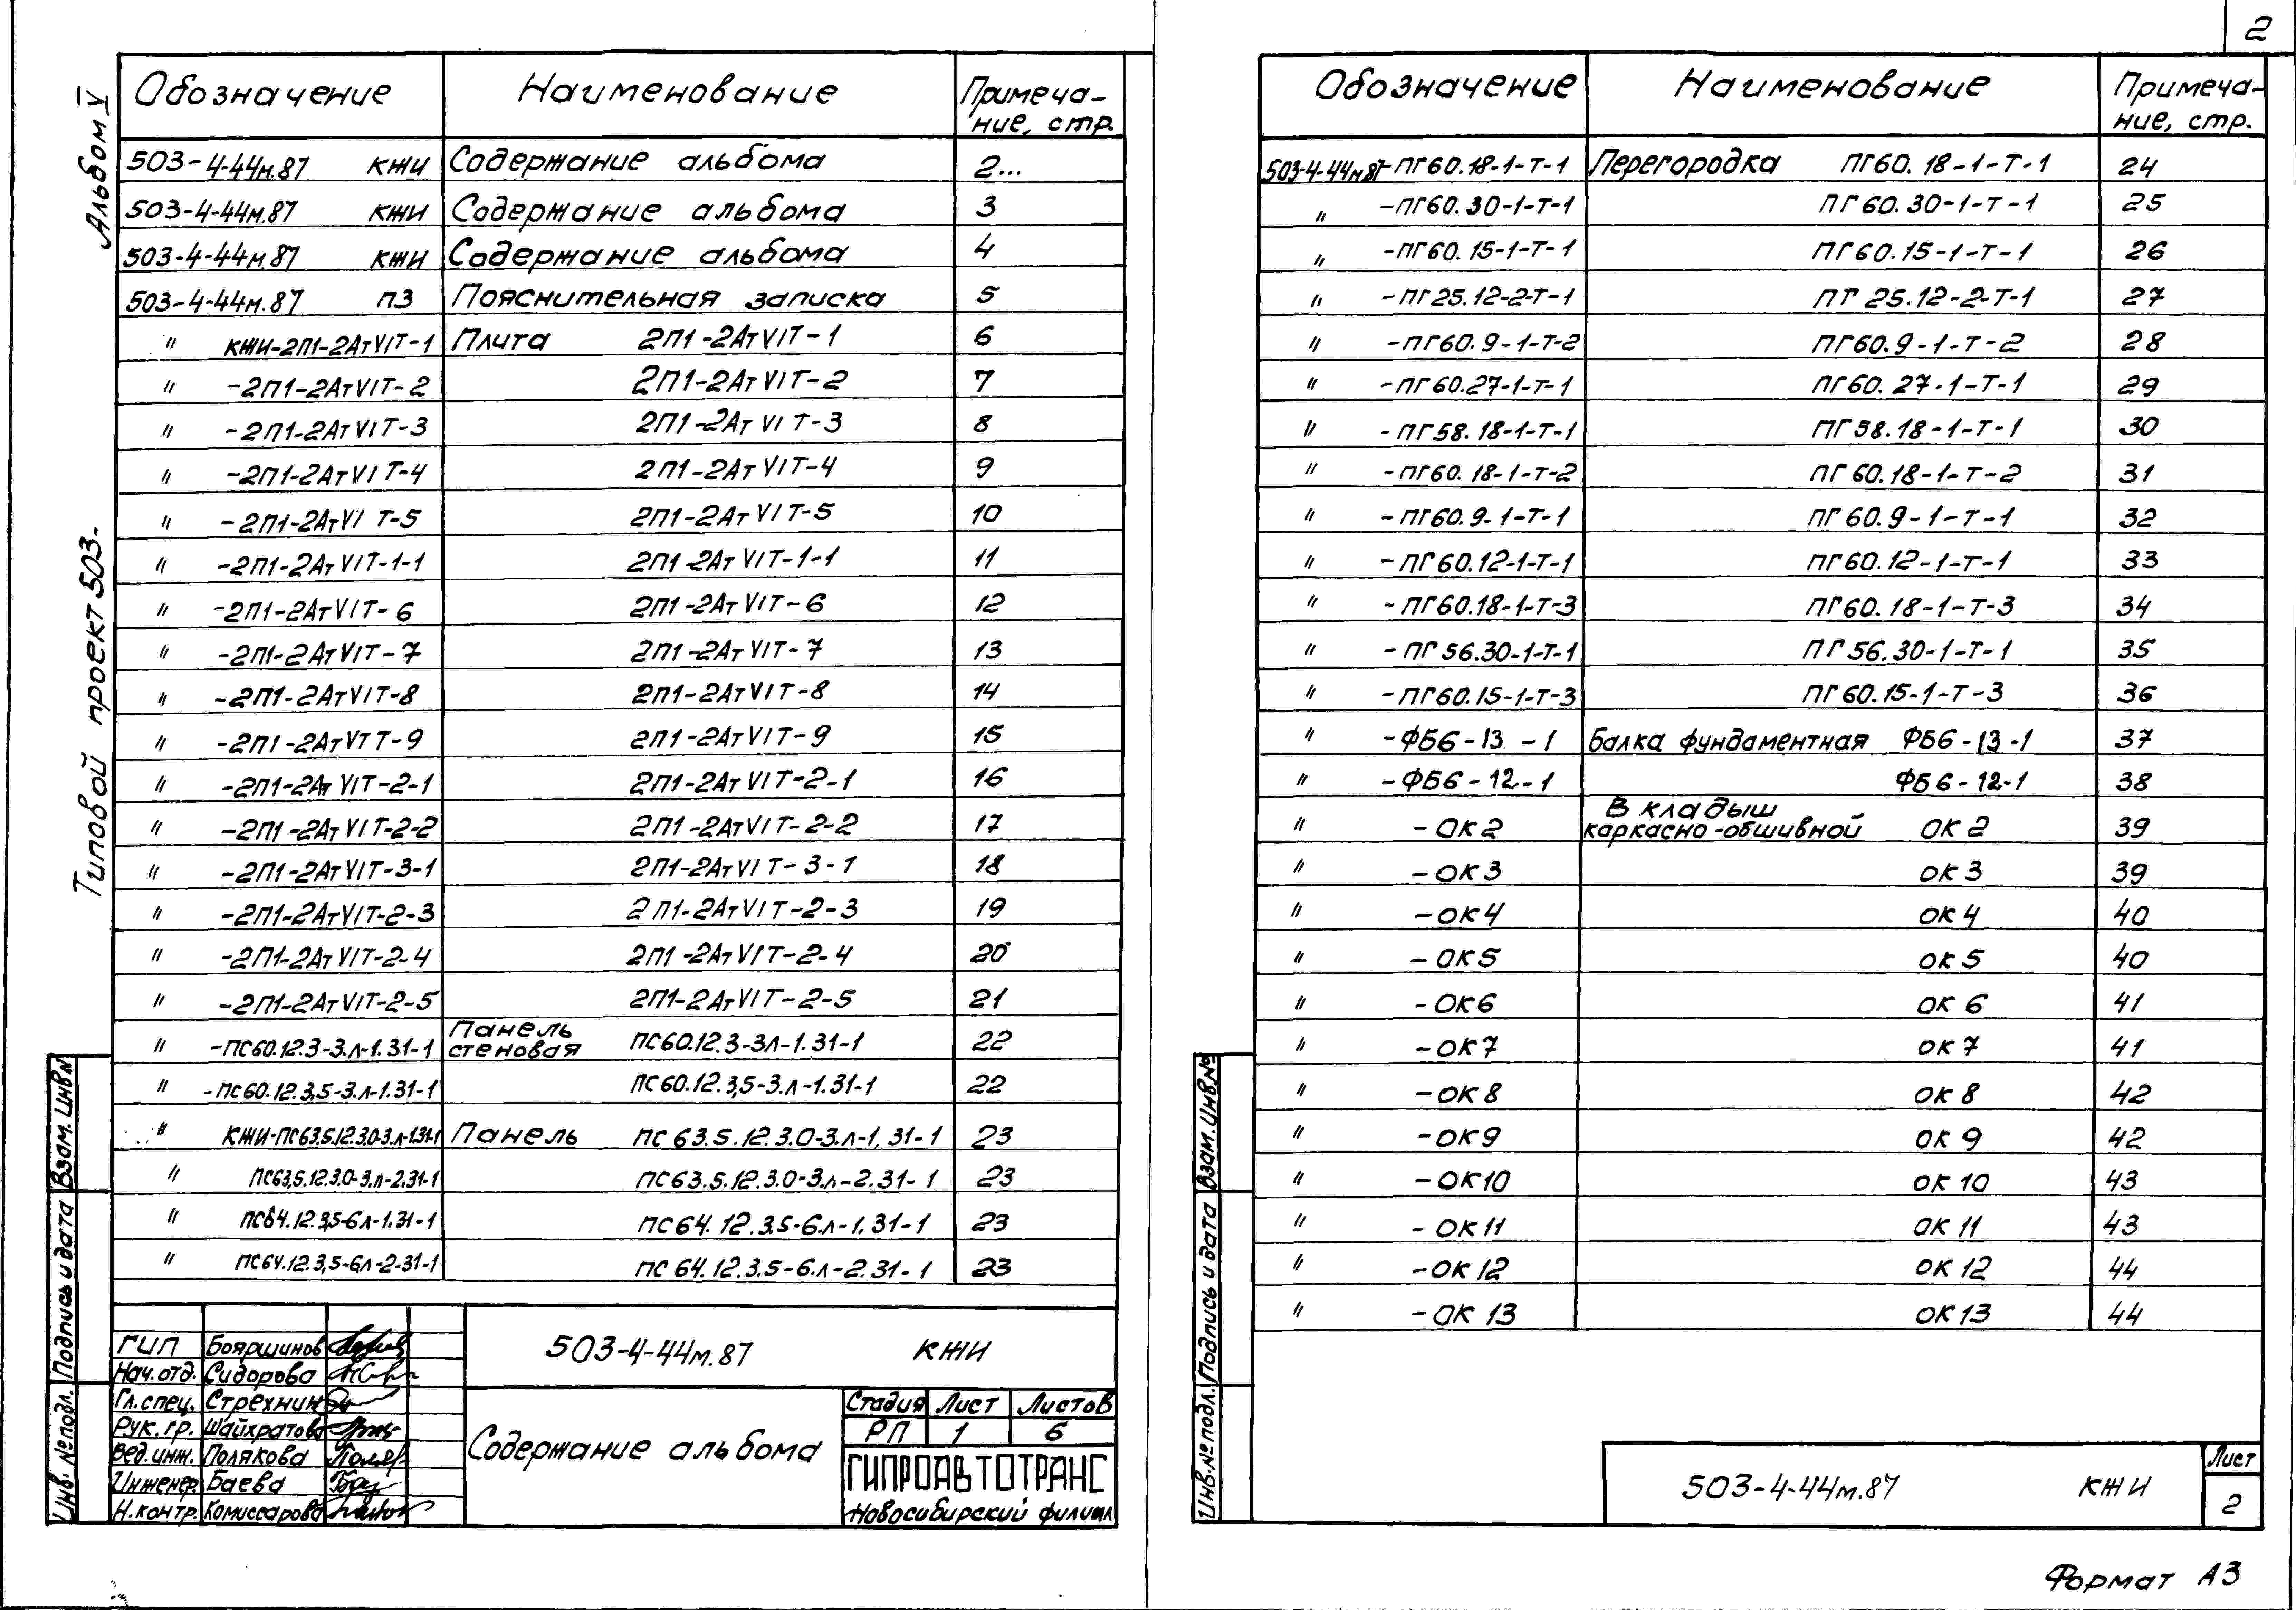 2
Альбом V
Типовой проект 503-
Обозначение Наименование Примеча-
ние, стр.
503-4-44м.87 КЖИ Содержание альбома 2...
503-4-44м.87 КЖИ Содержание альбома 3
503-4-44м.87 КЖИ Содержание альбома 4
503-4-44м.87 ПЗ Пояснительная записка 5
" КЖИ-2П1-2АтVIТ-1 Плита 2П1-2АтVIТ-1 6
" -2П1-2АтVIТ-2 2П1-2АтVIТ-2 7
" -2П1-2АтVIТ-3 2П1-2АтVIТ-3 8
" -2П1-2АтVIТ-4 2П1-2АтVIТ-4 9
" -2П1-2АтVIТ-5 2П1-2АтVIТ-5 10
" -2П1-2АтVIТ-1-1 2П1-2АтVIТ-1-1 11
" -2П1-2АтVIТ-6 2П1-2АтVIТ-6 12
" -2П1-2АтVIТ-7 2П1-2АтVIТ-7 13
" -2П1-2АтVIТ-8 2П1-2АтVIТ-8 14
" -2П1-2АтVIТ-9 2П1-2АтVIТ-9 15
" -2П1-2АтVIТ-2-1 2П1-2АтVIТ-2-1 16
" -2П1-2АтVIТ-2-2 2П1-2АтVIТ-2-2 17
" -2П1-2АтVIТ-3-1 2П1-2АтVIТ-3-1 18
" -2П1-2АтVIТ-2-3 2П1-2АтVIТ-2-3 19
" -2П1-2АтVIТ-2-4 2П1-2АтVIТ-2-4 20
" -2П1-2АтVIТ-2-5 2П1-2АтVIТ-2-5 21
Панель
" -ПС60.12.3-3.л-1.31-1 стеновая ПС60.12.3-3л-1.31-1 22
" -ПС60.12.3,5-3.л-1.31-1 ПС60.12.3,5-3.л-1.31-1 22
" КЖИ-ПС63.5.12.3.0-3.л-1.31-1 Панель ПС63.5.12.3.0-3.л-1.31-1 23
" ПС63,5.12.3.0-3.л-2.31-1 ПС63.5.12.3.0-3.л-2.31-1 23
" ПС64.12.3,5-6л-1.31-1 ПС64.12.3.5-6.л-1.31-1 23
" ПС64.12.3,5-6л-2-31-1 ПС64.12.3.5-6.л-2.31-1 23
Взам. инв №
Подпись и дата
Инв. № подл.
ГИП Бояршинов
Нач. отд. Сидорова
Гл. спец. Стрехнин
Рук. гр. Шайхратова
Вед. инж. Полякова
Инженер Баева
Н. контр. Комиссарова
503-4-44м.87 КЖИ
Содержание альбома
Стадия Лист Листов
РП 1 6
ГИПРОАВТОТРАНС
Новосибирский филиал
Обозначение Наименование Примеча-
ние, стр.
503-4-44м.87-ПГ60.18-1-Т-1 Перегородка ПГ60.18-1-Т-1 24
" -ПГ60.30-1-Т-1 ПГ60.30-1-Т-1 25
" -ПГ60.15-1-Т-1 ПГ60.15-1-Т-1 26
" -ПГ25.12-2-Т-1 ПГ25.12-2-Т-1 27
" -ПГ60.9-1-Т-2 ПГ60.9-1-Т-2 28
" -ПГ60.27-1-Т-1 ПГ60.27-1-Т-1 29
" -ПГ58.18-1-Т-1 ПГ58.18-1-Т-1 30
" -ПГ60.18-1-Т-2 ПГ60.18-1-Т-2 31
" -ПГ60.9-1-Т-1 ПГ60.9-1-Т-1 32
" -ПГ60.12-1-Т-1 ПГ60.12-1-Т-1 33
" -ПГ60.18-1-Т-3 ПГ60.18-1-Т-3 34
" -ПГ56.30-1-Т-1 ПГ56.30-1-Т-1 35
" -ПГ60.15-1-Т-3 ПГ60.15-1-Т-3 36
" -ФБ6-13-1 Балка фундаментная ФБ6-13-1 37
" -ФБ6-12-1 ФБ6-12-1 38
Вкладыш
" -ОК2 каркасно-обшивной ОК2 39
" -ОК3 ОК3 39
" -ОК4 ОК4 40
" -ОК5 ОК5 40
" -ОК6 ОК6 41
" -ОК7 ОК7 41
" -ОК8 ОК8 42
" -ОК9 ОК9 42
" -ОК10 ОК10 43
" -ОК11 ОК11 43
" -ОК12 ОК12 44
" -ОК13 ОК13 44
Взам. инв. №
Подпись и дата
Инв. № подл.
503-4-44м.87 КЖИ
Лист
2
Формат А3